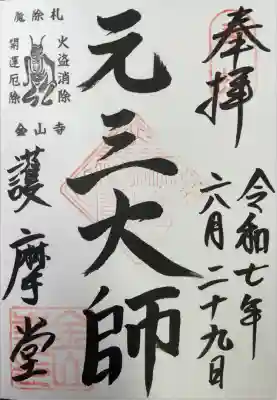 奉拝
令和七年
六月二十九日
元三大師
魔除札
火盗消除
開運厄除
金山寺
護摩堂